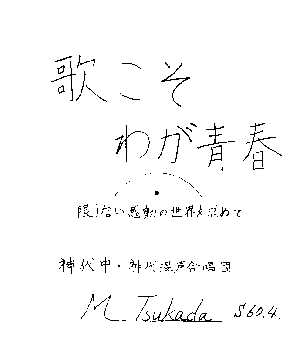 歌こそ
わが青春
限りない感動の世界を求めて
神代中・神代混声合唱団
M. Tsukada S60.4.